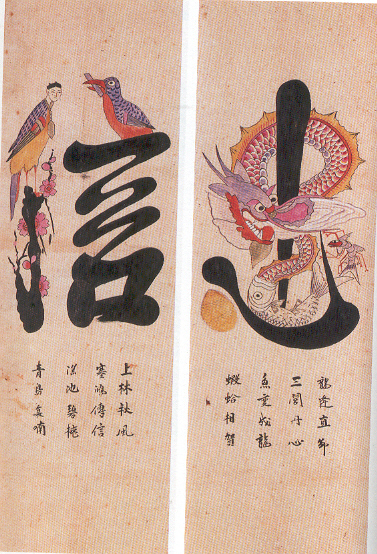 忠
龍逄直節
三閭丹心
魚變成龍
蝦蛤相賀
信
上林秋風
塞鴻傳信
池碧桃
青鳥喃